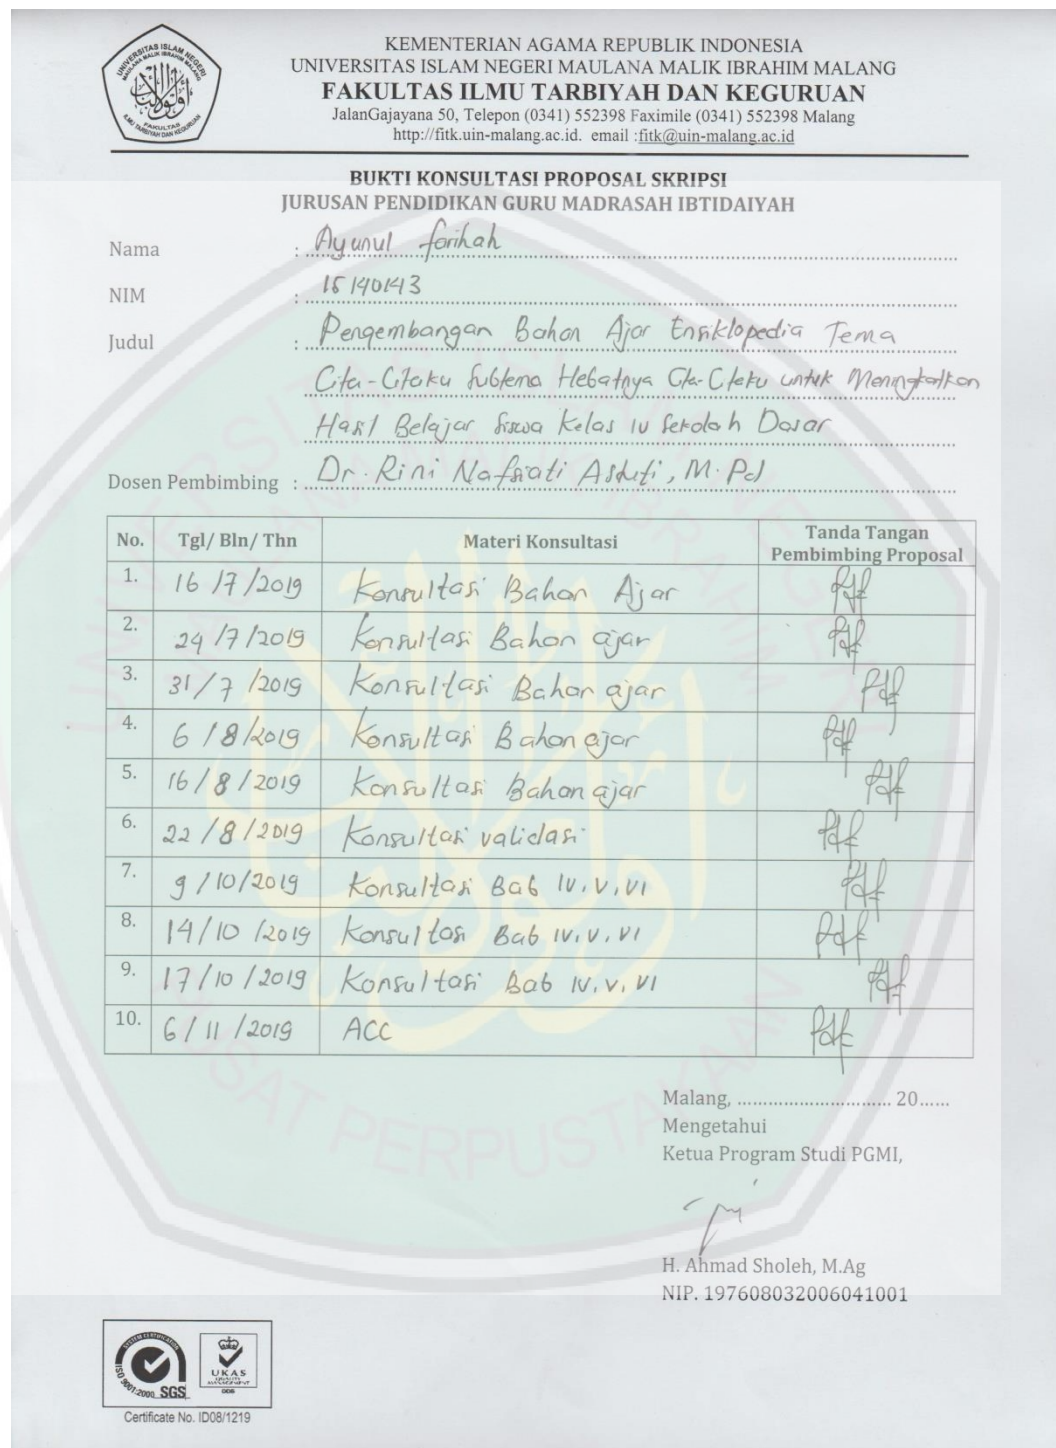 UNIVERSITAS ISLAM NEGERI
MAULANA MALIK IBRAHIM MALANG
FAKULTAS
ILMU TARBIYAH DAN KEGURUAN
KEMENTERIAN AGAMA REPUBLIK INDONESIA
UNIVERSITAS ISLAM NEGERI MAULANA MALIK IBRAHIM MALANG
FAKULTAS ILMU TARBIYAH DAN KEGURUAN
JalanGajayana 50, Telepon (0341) 552398 Faximile (0341) 552398 Malang
http://fitk.uin-malang.ac.id. email :fitk@uin-malang.ac.id
BUKTI KONSULTASI PROPOSAL SKRIPSI
JURUSAN PENDIDIKAN GURU MADRASAH IBTIDAIYAH
Nama : Ayunul farihah
NIM : 15140143
Judul : Pengembangan Bahan Ajar Ensiklopedia Tema
Cita-Citaku Subtema Hebatnya Cita-Citaku untuk Meningkatkan
Hasil Belajar Siswa Kelas IV Sekolah Dasar
Dosen Pembimbing : Dr. Rini Nafsiati Astuti, M.Pd
No. Tgl/ Bln/ Thn Materi Konsultasi Tanda Tangan Pembimbing Proposal
1. 16/7/2019 Konsultasi Bahan Ajar
2. 24/7/2019 Konsultasi Bahan ajar
3. 31/7/2019 Konsultasi Bahan ajar
4. 6/8/2019 Konsultasi Bahan ajar
5. 16/8/2019 Konsultasi Bahan ajar
6. 22/8/2019 Konsultasi validasi
7. 9/10/2019 Konsultasi Bab IV, V, VI
8. 14/10/2019 Konsultasi Bab IV, V, VI
9. 17/10/2019 Konsultasi Bab IV, V, VI
10. 6/11/2019 ACC
Malang, .............................. 20......
Mengetahui
Ketua Program Studi PGMI,
H. Ahmad Sholeh, M.Ag
NIP. 197608032006041001
SYSTEM CERTIFICATION
ISO 9001:2000 SGS
UKAS
QUALITY
MANAGEMENT
005
Certificate No. ID08/1219
PUSAT PERPUSTAKAAN